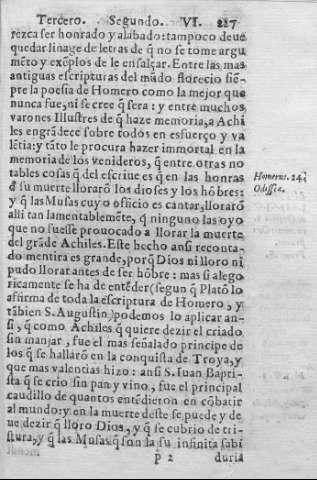 Tercero. Segundo. VI. 227
rezca ser honrado y alabado: tampoco deue
quedar linage de letras de q̃ no se tome argu
mẽto y exẽplos de le ensalçar. Entre las mas
antiguas escripturas del mũdo florecio siẽ-
pre la poesia de Homero como la mejor que
nunca fue, ni se cree q̃ sera: y entre muchos
varones Illustres de q̃ haze memoria, a Achi
les engrãdece sobre todos en esfuerço y va
lẽtia: y tãto le procura hazer immortal en la
memoria de los venideros, q̃ entre otras no
tables cosas q̃ del escriue es q̃ en las honras
d̃ su muerte llorarõ los dioses y los hõbres:
y q̃ las Musas cuyo officio es cantar, lloraró
alli tan lamentablemẽte, q̃ ninguno las oyo
que no fuesse prouocado a llorar la muerte
del grãde Achiles. Este hecho ansi reconta-
do mentira es grande, porq̃ Dios ni lloro ni
pudo llorar antes de ser hõbre: mas si alego
ricamente se ha de entẽder (segun q̃ Platõ lo
affirma de toda la escriptura de Homero, y
tãbien S. Augustin) podemos lo aplicar an-
si, q̃ como Achiles q̃ quiere dezir el criado
sin manjar, fue el mas señalado principe de
los q̃ se hallarõ en la conquista de Troya, y
que mas valentias hizo: ansi S. Iuan Baptis
ta q̃ se crio sin pan y vino, fue el principal
caudillo de quantos entẽdieron en cõbatir
al mundo: y en la muerte deste se puede y de
ue dezir q̃ lloro Dios, y q̃ se cubrio de tri-
stura, y q̃ las Musas q̃ son la su infinita sabi
P 2 duria
Homerus. 24.
Odissez.